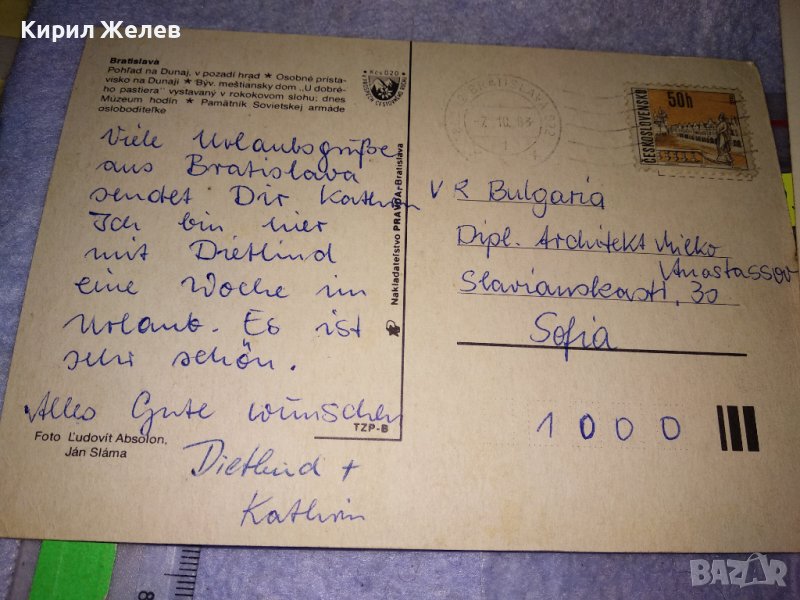 Кирил Желев
Bratislava
Pohľad na Dunaj, v pozadí hrad ★ Osobné prísta-
visko na Dunaji ★ Býv. meštiansky dom „U dobré-
ho pastiera" vystavaný v rokokovom slohu; dnes
Múzeum hodín ★ Pamätník Sovietskej armáde
osloboditeľke
Viele Urlaubsgrüße
aus Bratislava
sendet Dir Kathrin
Ich bin hier
mit Dietlind
eine Woche im
Urlaub. Es ist
sehr schön.
Alles Gute wünschen
Dietlind +
Kathrin
Foto Ľudovít Absolon,
Ján Sláma
TZP-B
Nakladateľstvo PRAVDA-Bratislava
Kčs 0,20
BRATISLAVA
-7.10.83
50h
ČESKOSLOVENSKO
V R Bulgaria
Dipl. Architekt Milko
Anastassov
Slavianskasti, 30
Sofia
1000
BAZAR